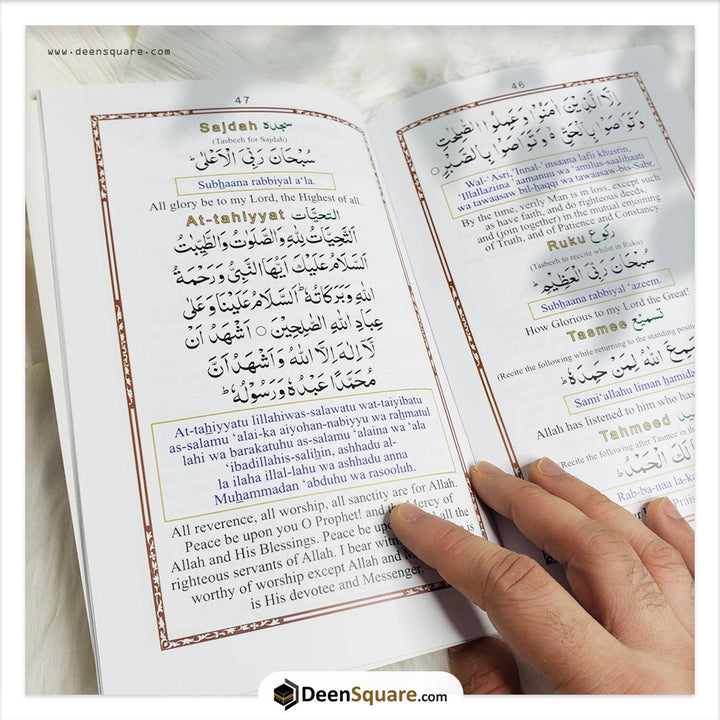 www.deensquare.com
47
Sajdah سجدة
(Tasbeeh for Sajdah)
سُبْحَانَ رَبِّيَ الْاَعْلٰى ؕ
Subhaana rabbiyal a'la.
All glory be to my Lord, the Highest of all.
At-tahiyyat التحيَّات
اَلتَّحِيَّاتُ لِلّٰهِ وَالصَّلَوٰتُ وَالطَّيِّبٰتُ
اَلسَّلَامُ عَلَيْكَ اَيُّهَا النَّبِيُّ وَرَحْمَةُ
اللهِ وَبَرَكَاتُهٗ ؕ اَلسَّلَامُ عَلَيْنَا وَعَلٰى
عِبَادِ اللهِ الصّٰلِحِيْنَ ○ اَشْهَدُ اَنْ
لَّآ اِلٰهَ اِلَّا اللهُ وَاَشْهَدُ اَنَّ
مُحَمَّدًا عَبْدُهٗ وَرَسُوْلُهٗ ؕ
At-tahiyyatu lillahiwas-salawatu wat-taiyibatu
as-salamu 'alai-ka aiyohan-nabiyyu wa rahmatul
lahi wa barakatuhu as-salamu 'alaina wa 'ala
'ibadillahis-salihin, ashhadu al-
la ilaha illal-lahu wa ashhadu anna
Muhammadan 'abduhu wa rasooluh.
All reverence, all worship, all sanctity are for Allah.
Peace be upon you O Prophet! and Mercy of
Allah and His Blessings. Peace be upon and all the
righteous servants of Allah. I bear with is
worthy of worship except Allah and
is His devotee and Messenger.
46
اِلَّا الَّذِيْنَ اٰمَنُوْا وَعَمِلُوا الصّٰلِحٰتِ
وَتَوَاصَوْا بِالْحَقِّ ۙ وَتَوَاصَوْا بِالصَّبْرِ ○
Wal-'Asri, 'Innal-'insaana lafii khusrin,
'Illallaziina 'aamanuu wa 'amilus-saalihaati
wa tawaasaw bil-haqqi wa tawaasaw-bis-Sabr.
By the time, verily Man is in loss, except such
as have faith, and do righteous deeds,
and (join together) in the mutual enjoining
of Truth, and of Patience and Constancy.
Ruku رکوع
(Tasbeeh to reccite whilst in Ruku)
سُبْحَانَ رَبِّيَ الْعَظِيْمِ ؕ
Subhaana rabbiyal 'azeem.
How Glorious to my Lord the Great!
Tasmee تسميع
(Recite the following while returning to the standing position
سَمِعَ اللهُ لِمَنْ حَمِدَهٗ ؕ
Sami'allahu liman hamida
Allah has listened to him who has
Tahmeed
(Recite the following after Tasmee in the
لَكَ الْحَمْدُ ؕ
Rab-ba-naa la-ka
Prais
DeenSquare.com